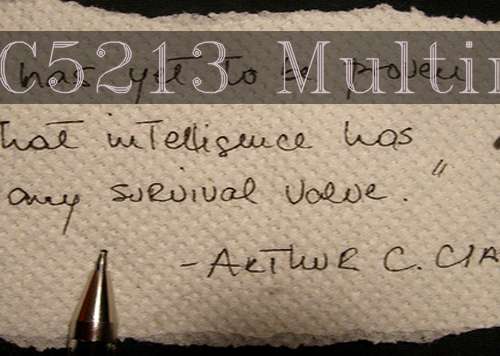 C5213 Multi
has yet to be proven
that intelligence has
any survival value."
-ARTHUR C. CLA